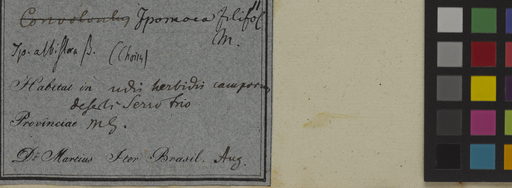 Convolvulus Ipomoea filifol
M.
Ip. albiflora β. (Choisy)
Habitat in udis herbidis camporum
deserti Serro frio
Provinciae M. G.
Dr. Martius Iter Brasil. Aug.